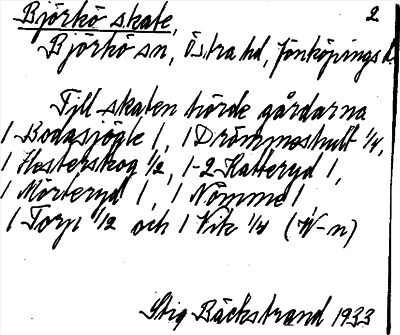 Björkö skate, 2
Björkö sn, Östra hd, Jönköpings l.
Till skaten hörde gårdarna
1 Bodasjögle 1, 1 Drömmeshult 1/4,
1 Hesterskog 1/2, 1-2 Hatteryd 1,
1 Mörteryd 1, 1 Nömme 1,
1 Torp 1/2 och 1 Vik 1/4 (W-n)
Stig Bäckstrand 1933